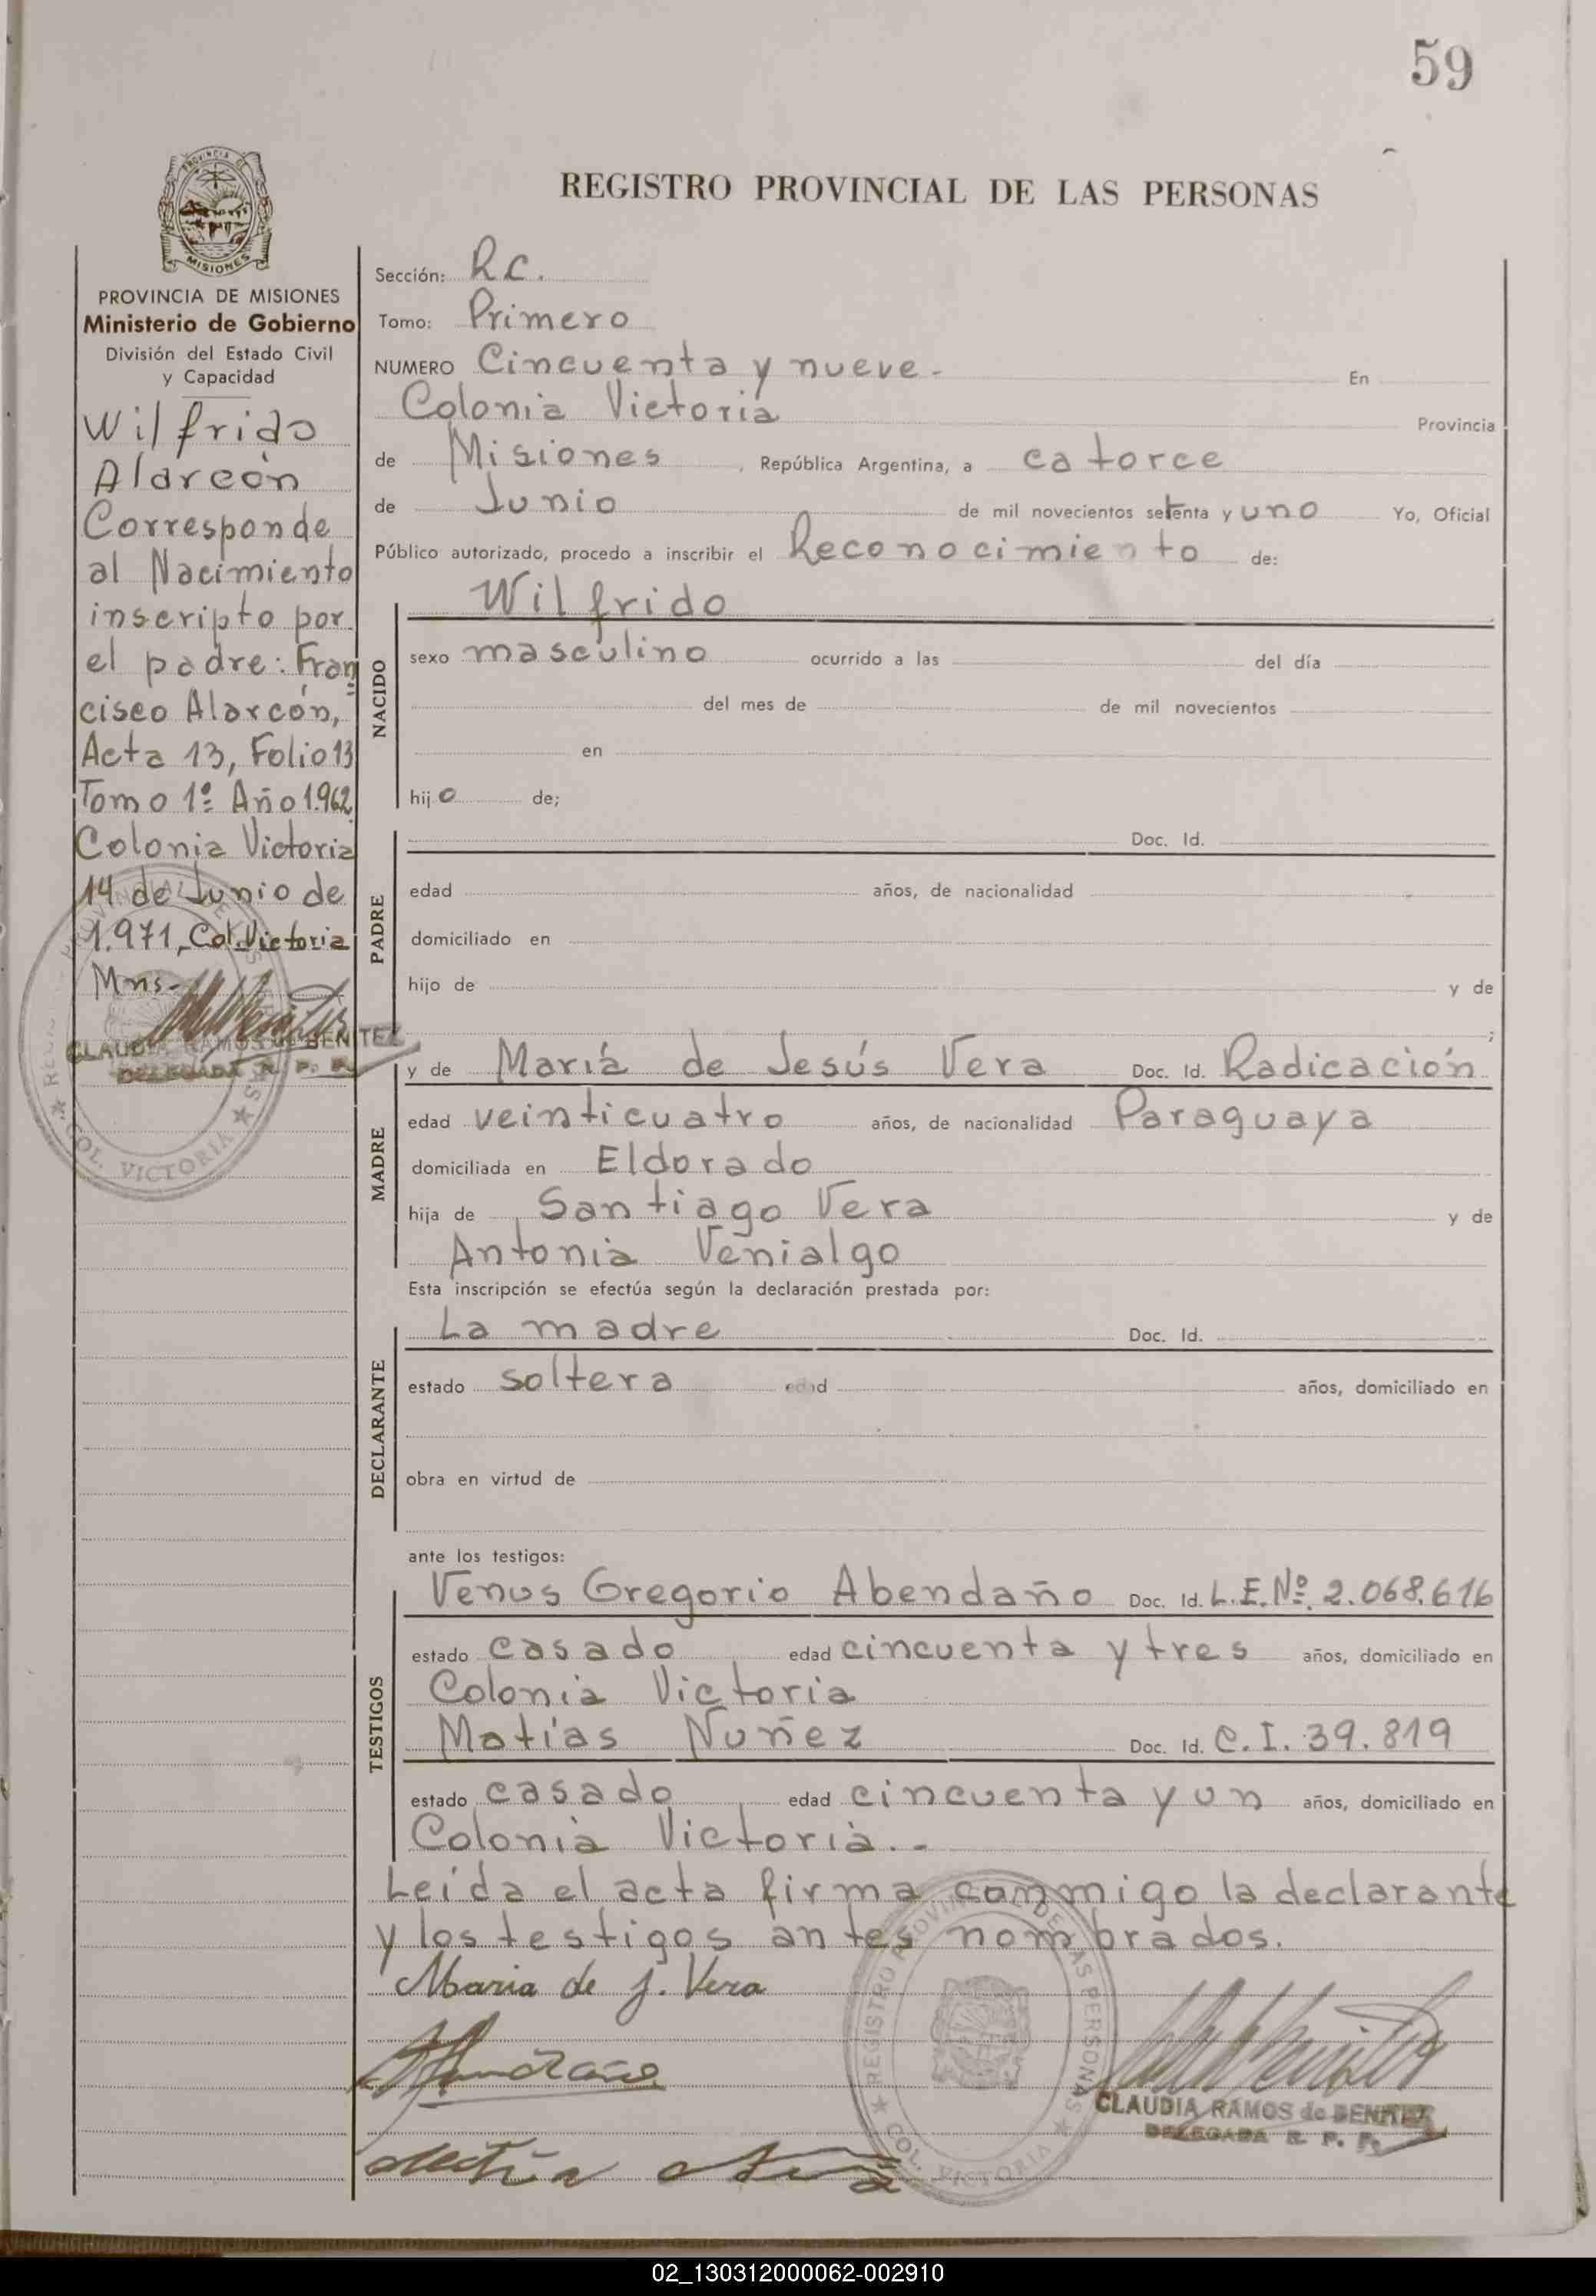 59
PROVINCIA DE
MISIONES
REGISTRO PROVINCIAL DE LAS PERSONAS
PROVINCIA DE MISIONES
Ministerio de Gobierno
División del Estado Civil
y Capacidad
Wilfrido
Alarcón
Corresponde
al Nacimiento
inscripto por
el padre: Fran
cisco Alarcón,
Acta 13, Folio 13
Tomo 1º Año 1.962
Colonia Victoria
14 de Junio de
1.971, Col. Victoria
Mns-
CLAUDIA RAMOS de BENITEZ
DELEGADA R. P. P.
COL. VICTORIA
Sección: R.C.
Tomo: Primero
NUMERO Cincuenta y nueve.- En
Colonia Victoria Provincia
de Misiones, República Argentina, a catorce
de Junio de mil novecientos setenta y uno Yo, Oficial
Público autorizado, procedo a inscribir el Reconocimiento de:
NACIDO
Wilfrido
sexo masculino ocurrido a las del día
del mes de de mil novecientos
en
hijo de;
PADRE
Doc. Id.
edad años, de nacionalidad
domiciliado en
hijo de y de
;
MADRE
y de María de Jesús Vera Doc. Id. Radicación
edad veinticuatro años, de nacionalidad Paraguaya
domiciliada en Eldorado
hija de Santiago Vera y de
Antonia Venialgo
Esta inscripción se efectúa según la declaración prestada por:
DECLARANTE
La madre Doc. Id.
estado soltera edad años, domiciliado en
obra en virtud de
ante los testigos:
TESTIGOS
Venus Gregorio Abendaño Doc. Id. L.E.Nº 2.068.616
estado casado edad cincuenta y tres años, domiciliado en
Colonia Victoria
Matías Nuñez Doc. Id. C.I. 39.819
estado casado edad cincuenta y un años, domiciliado en
Colonia Victoria.-
Leída el acta firma conmigo la declarante
y los testigos antes nombrados.
Maria de J. Vera
REGISTRO PROVINCIAL DE LAS PERSONAS
COL. VICTORIA
CLAUDIA RAMOS de BENITEZ
DELEGADA R. P. P.
02_130312000062-002910